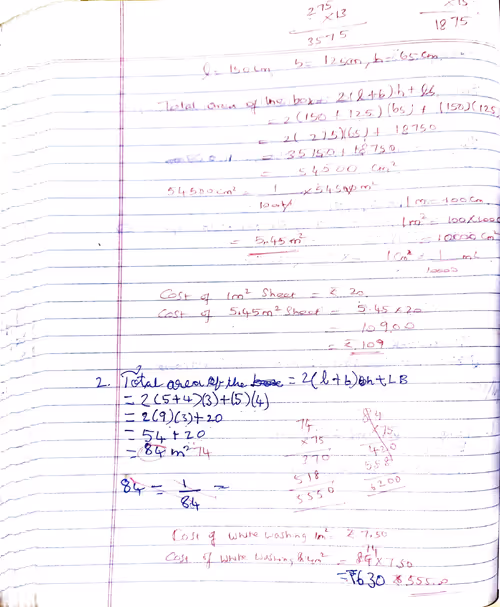 275
×13
3575
×15
1875
l = 150cm, b = 125cm, h = 65cm
Total area of the box = 2(l+b)h + lb
= 2(150+125)(65) + (150)(125
= 2(275)(65) + 18750
= 35750 + 18750
= 54500 cm²
54500cm² = 1 × 54500 m²
1m = 100cm
1m² = 100×100
= 5.45m²
= 10000 cm²
1cm² = 1 m²
10000
Cost of 1m² Sheet = ₹ 20
Cost of 5.45m² Sheet = 5.45 × 20
= 109.00
= ₹ 109
2. Total area of the = 2(l+b)h+LB
= 2(5+4)(3)+(5)(4)
= 2(9)(3)+20
= 54+20
= 84 m² 74
84 = 1 =
84
74
×75
370
518
5550
84
×75
420
588
6300
Cost of white washing 1m² = ₹ 7.50
Cost of white washing 84m² = 84 74 × 7.50
= ₹630 ₹ 555.0